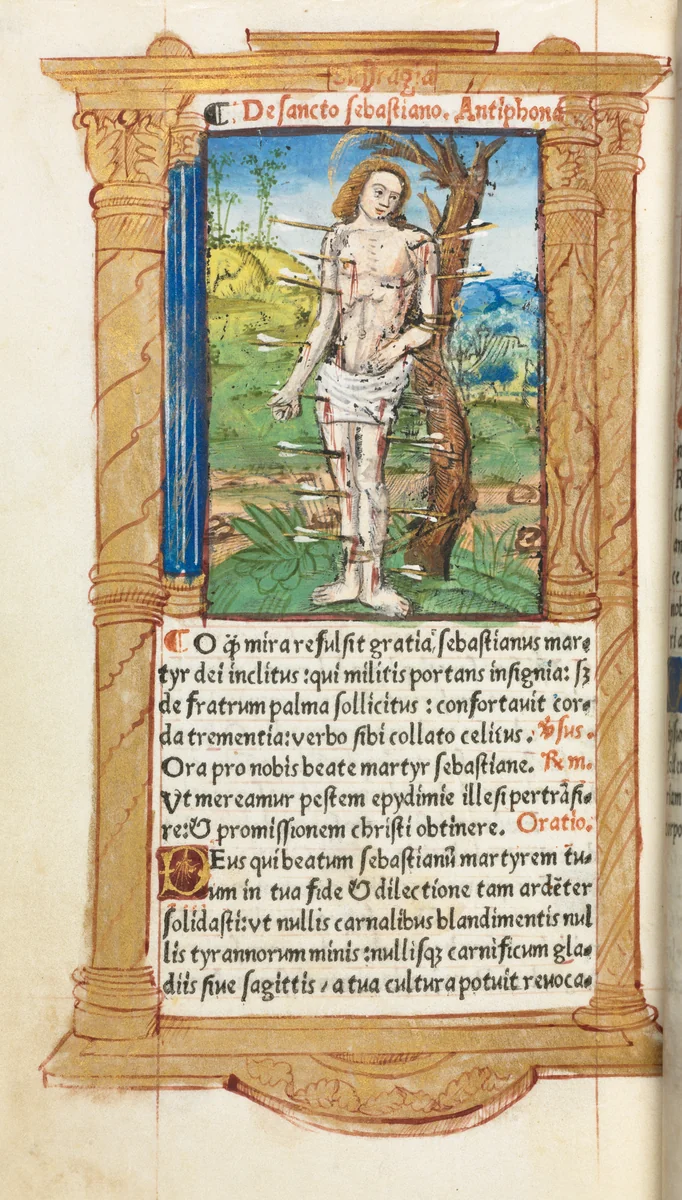 Suffragia
¶ De sancto sebastiano. Antiphona
¶ O q̃ mira refulsit gratia, sebastianus mar-
tyr dei inclitus : qui militis portans insignia: sꝫ
de fratrum palma sollicitus : confortauit cor-
da trementia: verbo sibi collato celitus. ꝟsus.
Ora pro nobis beate martyr sebastiane. Rm.
Vt mereamur pestem epydimie illesi pertrãsi-
re: & promissionem christi obtinere. Oratio.
DEus qui beatum sebastianũ martyrem tu-
um in tua fide & dilectione tam ardẽter
solidasti: vt nullis carnalibus blandimentis nul
lis tyrannorum minis : nullisqꝫ carnificum gla-
diis siue sagittis / a tua cultura potuit reuoca-